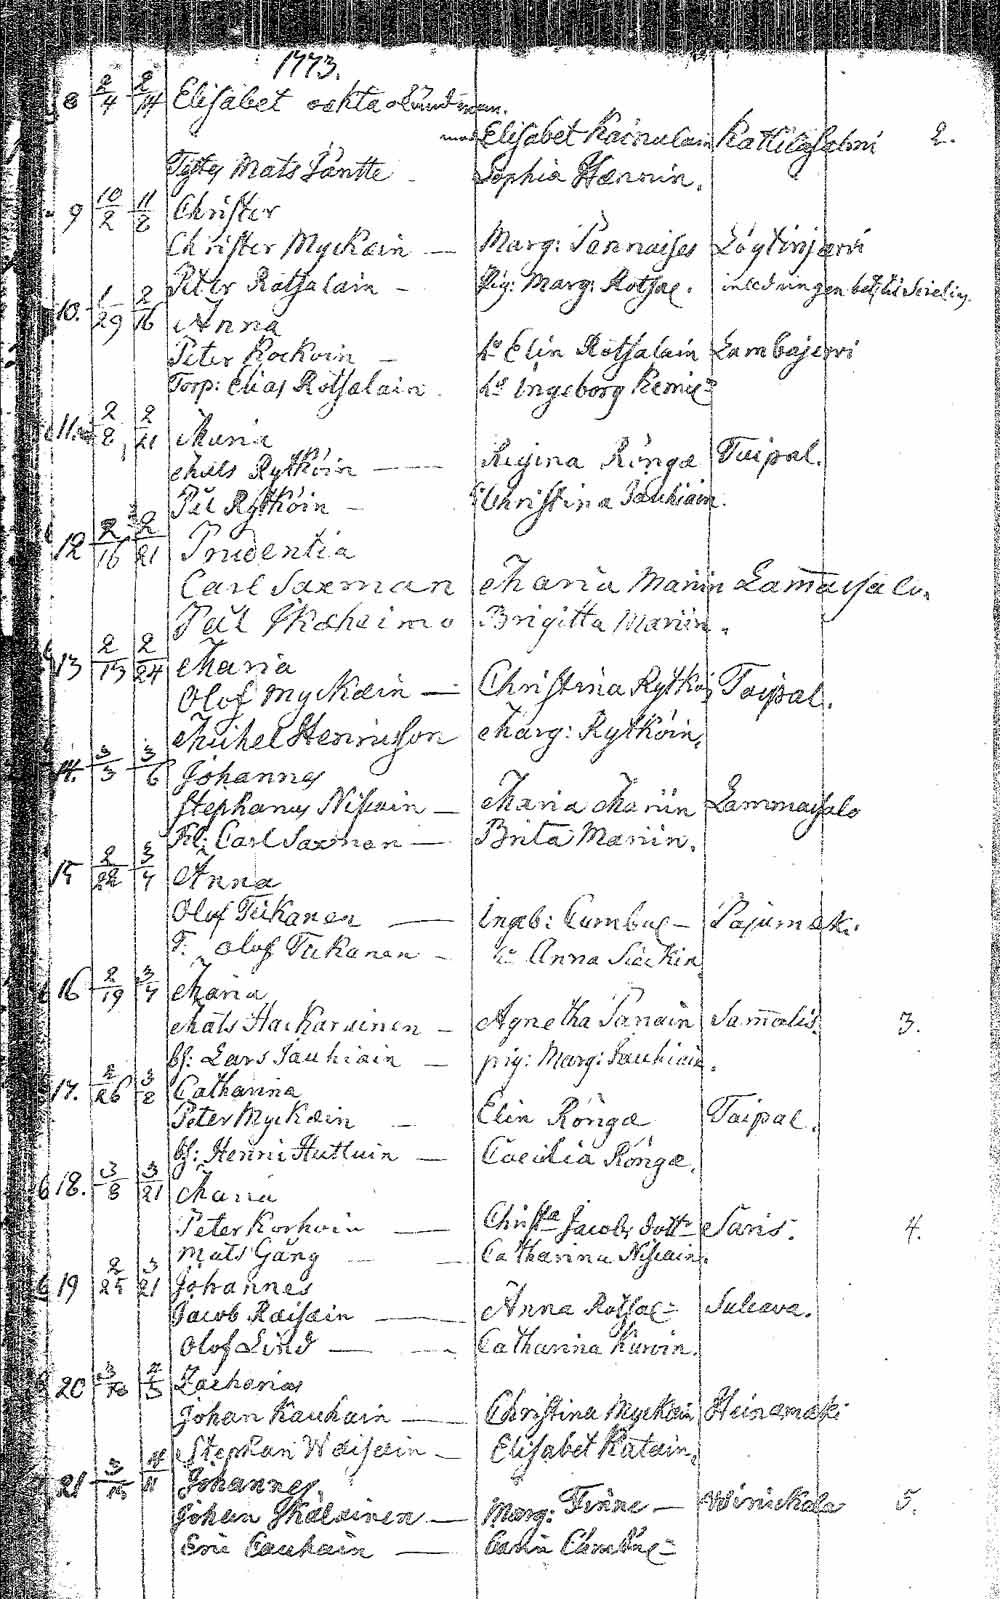 1773.
8 2/4 2/14 Elisabet oekta
Elisabet Kainulain Kattilasalmi 2.
Mats Jäntte - Sophia Hannin.
9 10/2 11/2 Christer
Christer Myckäin — Marg: Pannaises Lögtinjervi
Peter Rotsalain - Pig: Marg: Rotsae. inledningen
10. 1/29 2/16 Anna
Peter Kockoin — hu Elin Rotsalain Lambajervi
Torp: Elias Rotsalain. hu Ingeborg
11. 2/8 2/21 Maria
Mats Rytköin — Regina Röngä Taipal.
Pål Rytköin - Christina Jauhiain.
12 2/16 2/21 Prudentia
Carl Saxman Maria Mariin Lam̅asalo.
Pål Skaheimo Brigitta Mariin.
13 2/13 2/24 Maria
Olof Myckäin — Christina Rytköi Taipal.
Michel Henrisson Marg: Rytköin.
14. 3/3 3/6 Johannes
Stephanus Nissin — Maria Mariin Lammasalo
Carl Saxman — Brita Mariin.
15 2/22 3/7 Anna
Olof Tikanen — Ingeb: Pajumäki.
T. Olof Tikanen - hu Anna
16 2/19 3/7 Maria
Mats Hackarainen - Agnetha Panain Sam̅alis. 3.
bs: Lars Jauhiain — pig: Marg: Jauhiain.
17. 2/26 3/8 Catharina
Peter Myckäin - Elin Röngä Taipal.
bs: Henric Huttuin — Caecilia Röngä.
18. 3/8 3/21 Maria
Peter Korhoin — Christa Jacobs dottr Saris. 4.
Mats Gång — Catharina Nissain.
19 2/25 3/21 Johannes
Jacob Räisäin — Anna Rotsae= Sulcava.
Olof Lind — Catharina Kurvin.
20 3/13 4/5 Zacharias
Johan Kauhain — Christina Myckäin Heinämäki
Stephan Wäisäin — Elisabet Katain.
21 3/15 4/11 Johannes
Johan Skälainen — Marg: Finne — Winickala 5.
Eric Cauhain — Carin